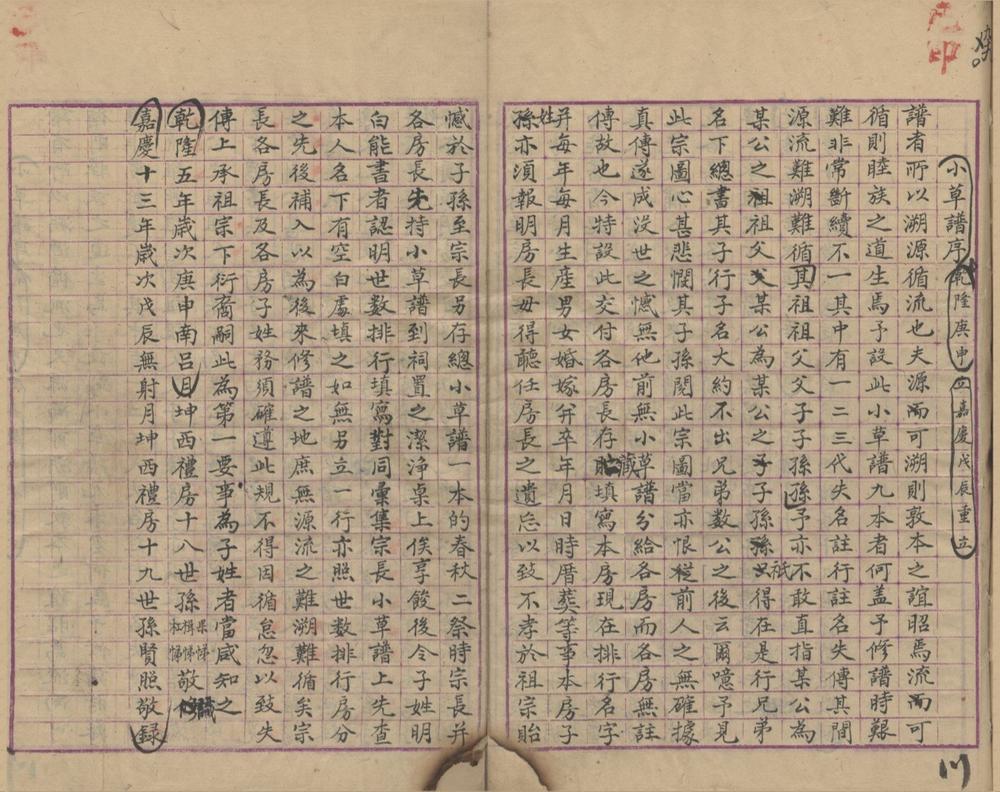 小草譜序 乾隆庚申 立 嘉慶戊辰重立
譜者所以溯源循流也夫源而可溯則敦本之誼昭焉流而可
循則睦族之道生焉予設此小草譜九本者何盖予修譜時艱
難非常斷續不一其中有一二三代失名註行註名失傳其間
源流難溯難循其祖祖父父子子孫孫予亦不敢直指某公為
某公之祖祖父父某公為某公之子子孫孫祇得在是行兄弟
名下總書其子行子名大約不出兄弟數公之後云爾噫予見
此宗圖心甚悲憫其子孫閱此宗圖當亦恨從前人之無確據
真傳遂成沒世之憾無他前無小草譜分給各房而各房無註
傳故也今特設此交付各房長存藏填寫本房現在排行名字
并每年每月生產男女婚嫁弁卒年月日時厝葬等事本房子
姓孫亦須報明房長毋得聽任房長之遺忘以致不孝於祖宗貽
憾於子孫至宗長另存總小草譜一本的春秋二祭時宗長并
各房長先持小草譜到祠置之潔淨桌上俟享餕後令子姓明
白能書者認明世數排行填寫對同彙集宗長小草譜上先查
本人名下有空白處填之如無另立一行亦照世數排行房分
之先後補入以為後來修譜之地庶無源流之難溯難循矣宗
長各房長及各房子姓務須確遵此規不得因循怠忽以致失
傳上承祖宗下衍裔嗣此為第一要事為子姓者當咸知之
乾隆五年歲次庚申南呂月坤西禮房十八世孫 果悌 楫悌 杜悌 敬識
嘉慶十三年歲次戊辰無射月坤西禮房十九世孫賢照敬録